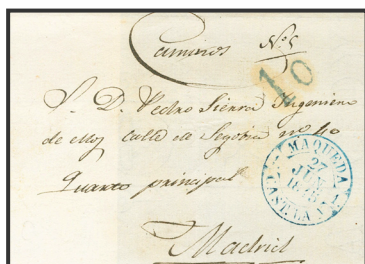 Caminos Nº 5
10
S. D. Pedro Sierra Ingeniero
de calle de Segovia nº 40
Quarto principal
MAQUEDA
27
JUN
CAST. LA N.
Madrid